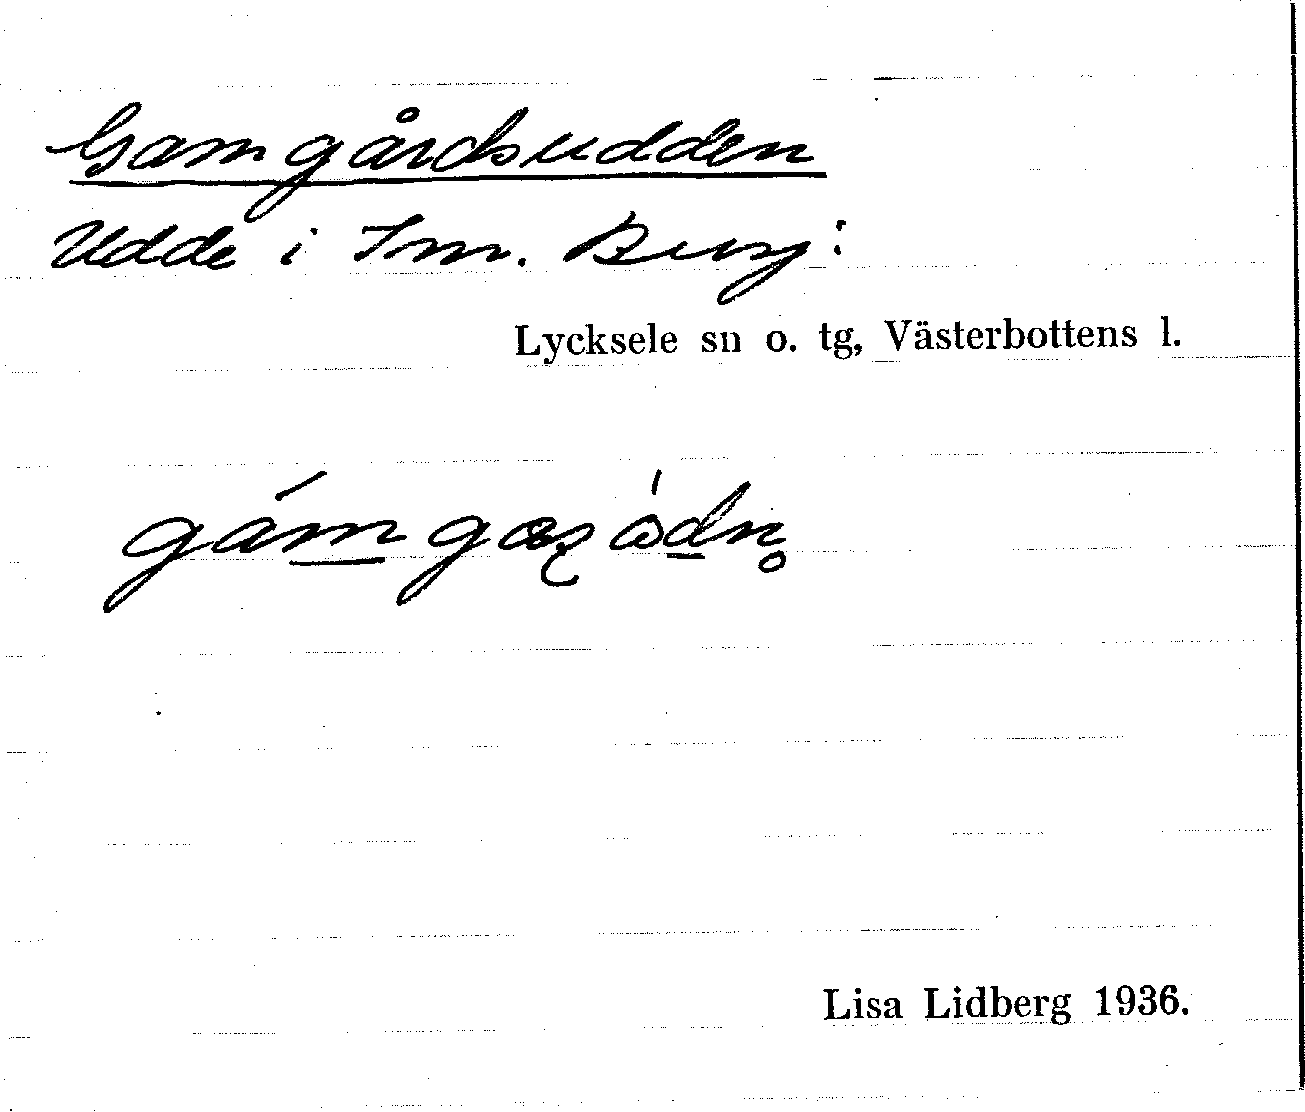 Gamgårdsudden
Udde i Sm. Burg:
Lycksele sn o. tg, Västerbottens l.
Lisa Lidberg 1936.